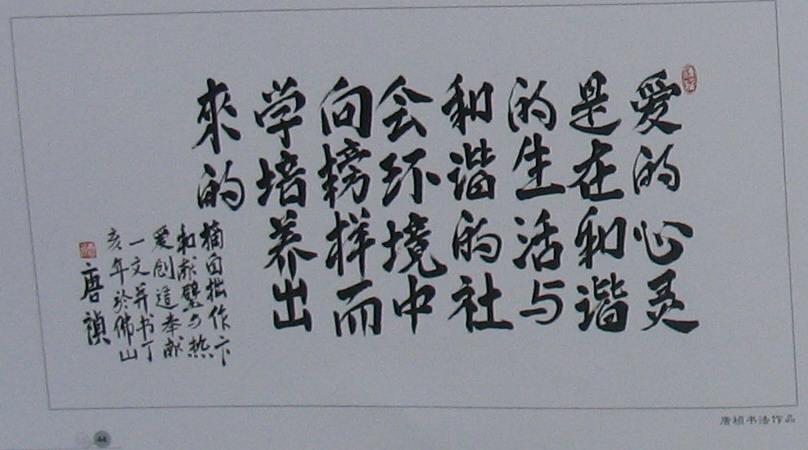 爱的心灵
是在和谐
的生活与
和谐的社
会环境中
向榜样而
学培养出
来的
摘自拙作卞
和献璧与热
爱创造奉献
一文并书丁
亥年于佛山
唐祯
唐祯书法作品
44